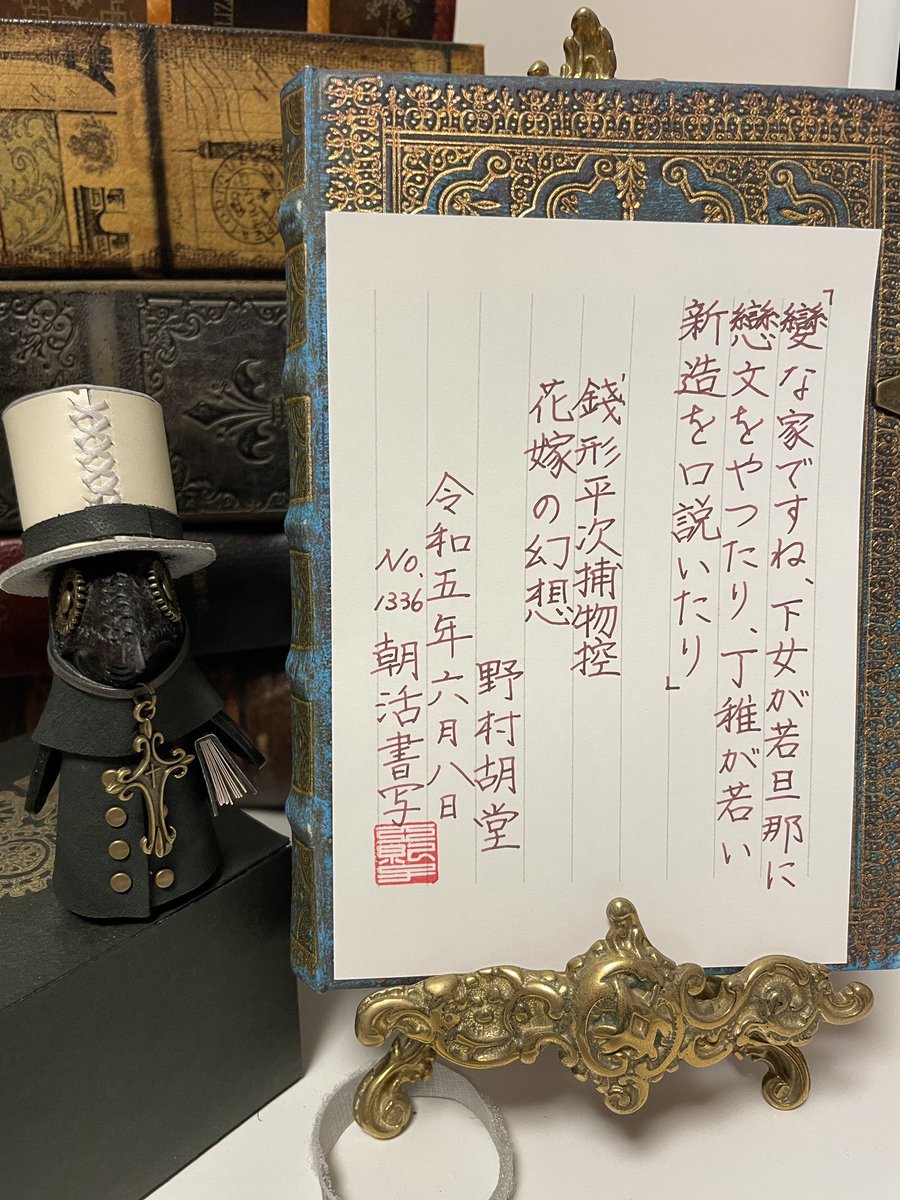 「變な家ですね、下女が若旦那に
戀文をやつたり、丁稚が若い
新造を口説いたり」
錢形平次捕物控
花嫁の幻想
野村胡堂
令和五年六月八日
No.1336 朝活書写